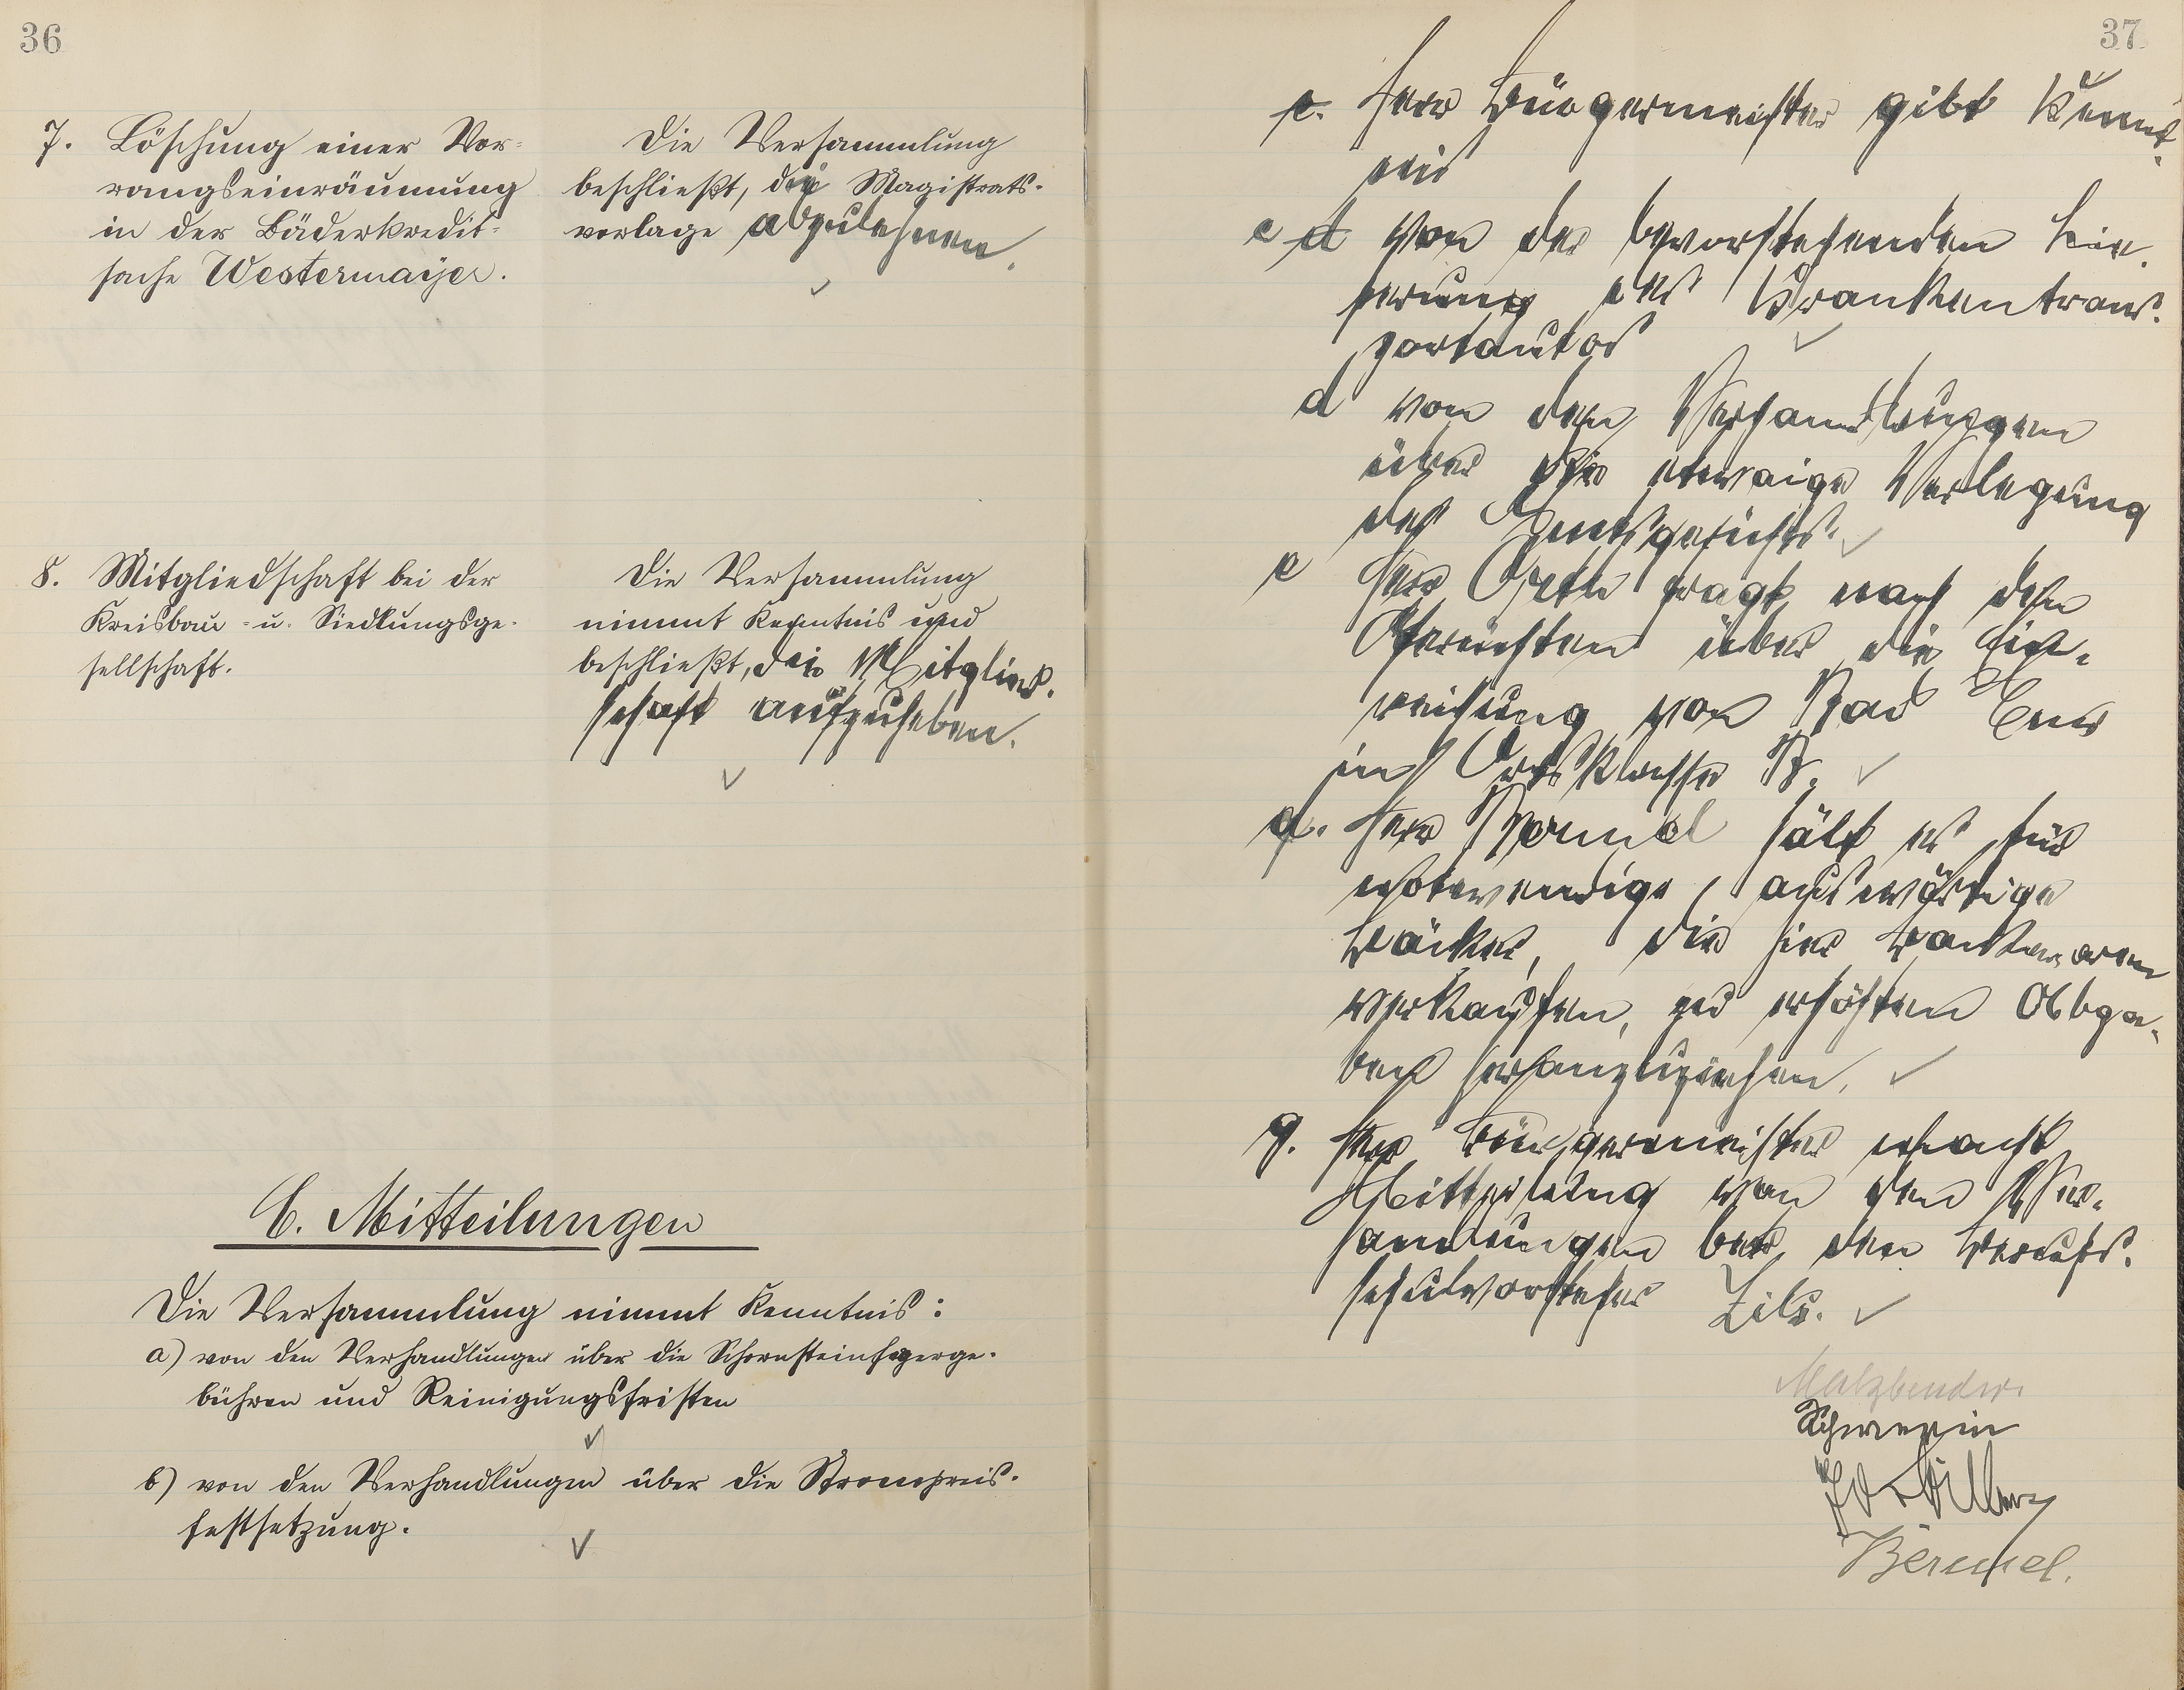 36
7. Löschung einer Vor=
rangseinräumung
in der Bäderkredit=
sache Westermaijer.
Die Versammlung
beschließt, die Magistrats-
vorlage abzulehnen.
8. Mitgliedschaft bei der
Kreisbau= u. Siedlungsge-
sellschaft.
Die Versammlung
nimmt Kenntnis und
beschließt, die Mitglied-
schaft aufzuheben.
C. Mitteilungen
Die Versammlung nimmt Kenntnis:
a) von den Verhandlungen über die Schornsteinfegerge-
bühren und Reinigungsfristen
b) von den Verhandlungen über die Strompreis-
festsetzung.
37
c. Herr Bürgermeister gibt Kennt-
nis
c d von der bevorstehenden Lie-
ferung des Krankentrans-
portautos
d von den Verhandlungen
über die etwaige Verlegung
des Amtsgerichts.
e Herr fragt nach den
Gerüchten über die Ein-
reihung von Bad Ems
in Ortsklasse B.
Herr Bermel hält es für
notwendige, auswärtige
Bäcker, die hier Backwaren
verkaufen, zu erhöhten Abga-
ben heranzuziehen.
g. Herr Bürgermeister macht
Mitteilung von den Ver-
handlungen den Berufs-
schulvorsteher
Malzbender
Schwerin
Bermel.